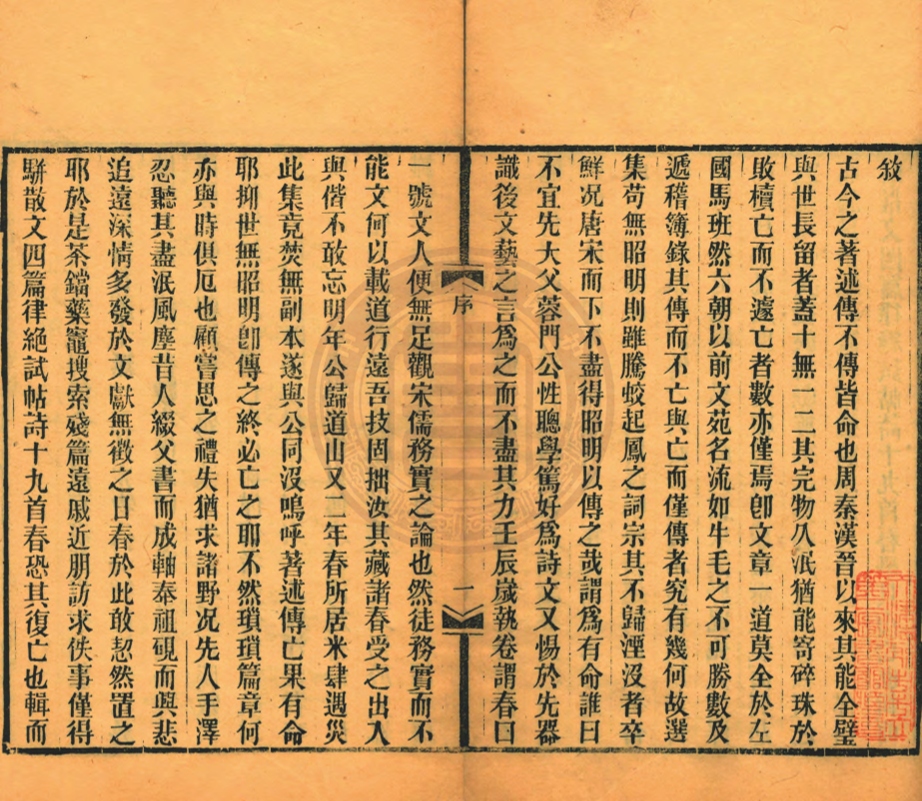 敍
古今之著述傳不傳皆命也周秦漢晉以來其能全璧
與世長留者蓋十無一二其完物久泯猶能寄碎珠於
敗櫝亡而不遽亡者數亦僅焉卽文章一道莫全於左
國馬班然六朝以前文苑名流如牛毛之不可勝數及
遞稽簿錄其傳而不亡與亡而僅傳者究有幾何故選
集苟無昭明則雖騰蛟起鳳之詞宗其不歸湮沒者卒
鮮況唐宋而下不盡得昭明以傳之哉謂爲有命誰曰
不宜先大父蓉門公性聰學篤好爲詩文又惕於先器
識後文藝之言爲之而不盡其力壬辰歲執卷謂春曰
序
一
一號文人便無足觀宋儒務實之論也然徒務實而不
能文何以載道行遠吾技固拙汝其藏諸春受之出入
與偕不敢忘明年公歸道山又二年春所居米肆遇災
此集竟焚無副本遂與公同沒嗚呼著述傳亡果有命
耶抑世無昭明卽傳之終必亡之耶不然瑣瑣篇章何
亦與時俱厄也顧嘗思之禮失猶求諸野况先人手澤
忍聽其盡泯風塵昔人綴父書而成軸奉祖硯而興悲
追遠深情多發於文獻無徵之日春於此敢恝然置之
耶於是茶鐺藥竈搜索殘篇遠戚近朋訪求佚事僅得
駢散文四篇律絕試帖詩十九首春恐其復亡也輯而